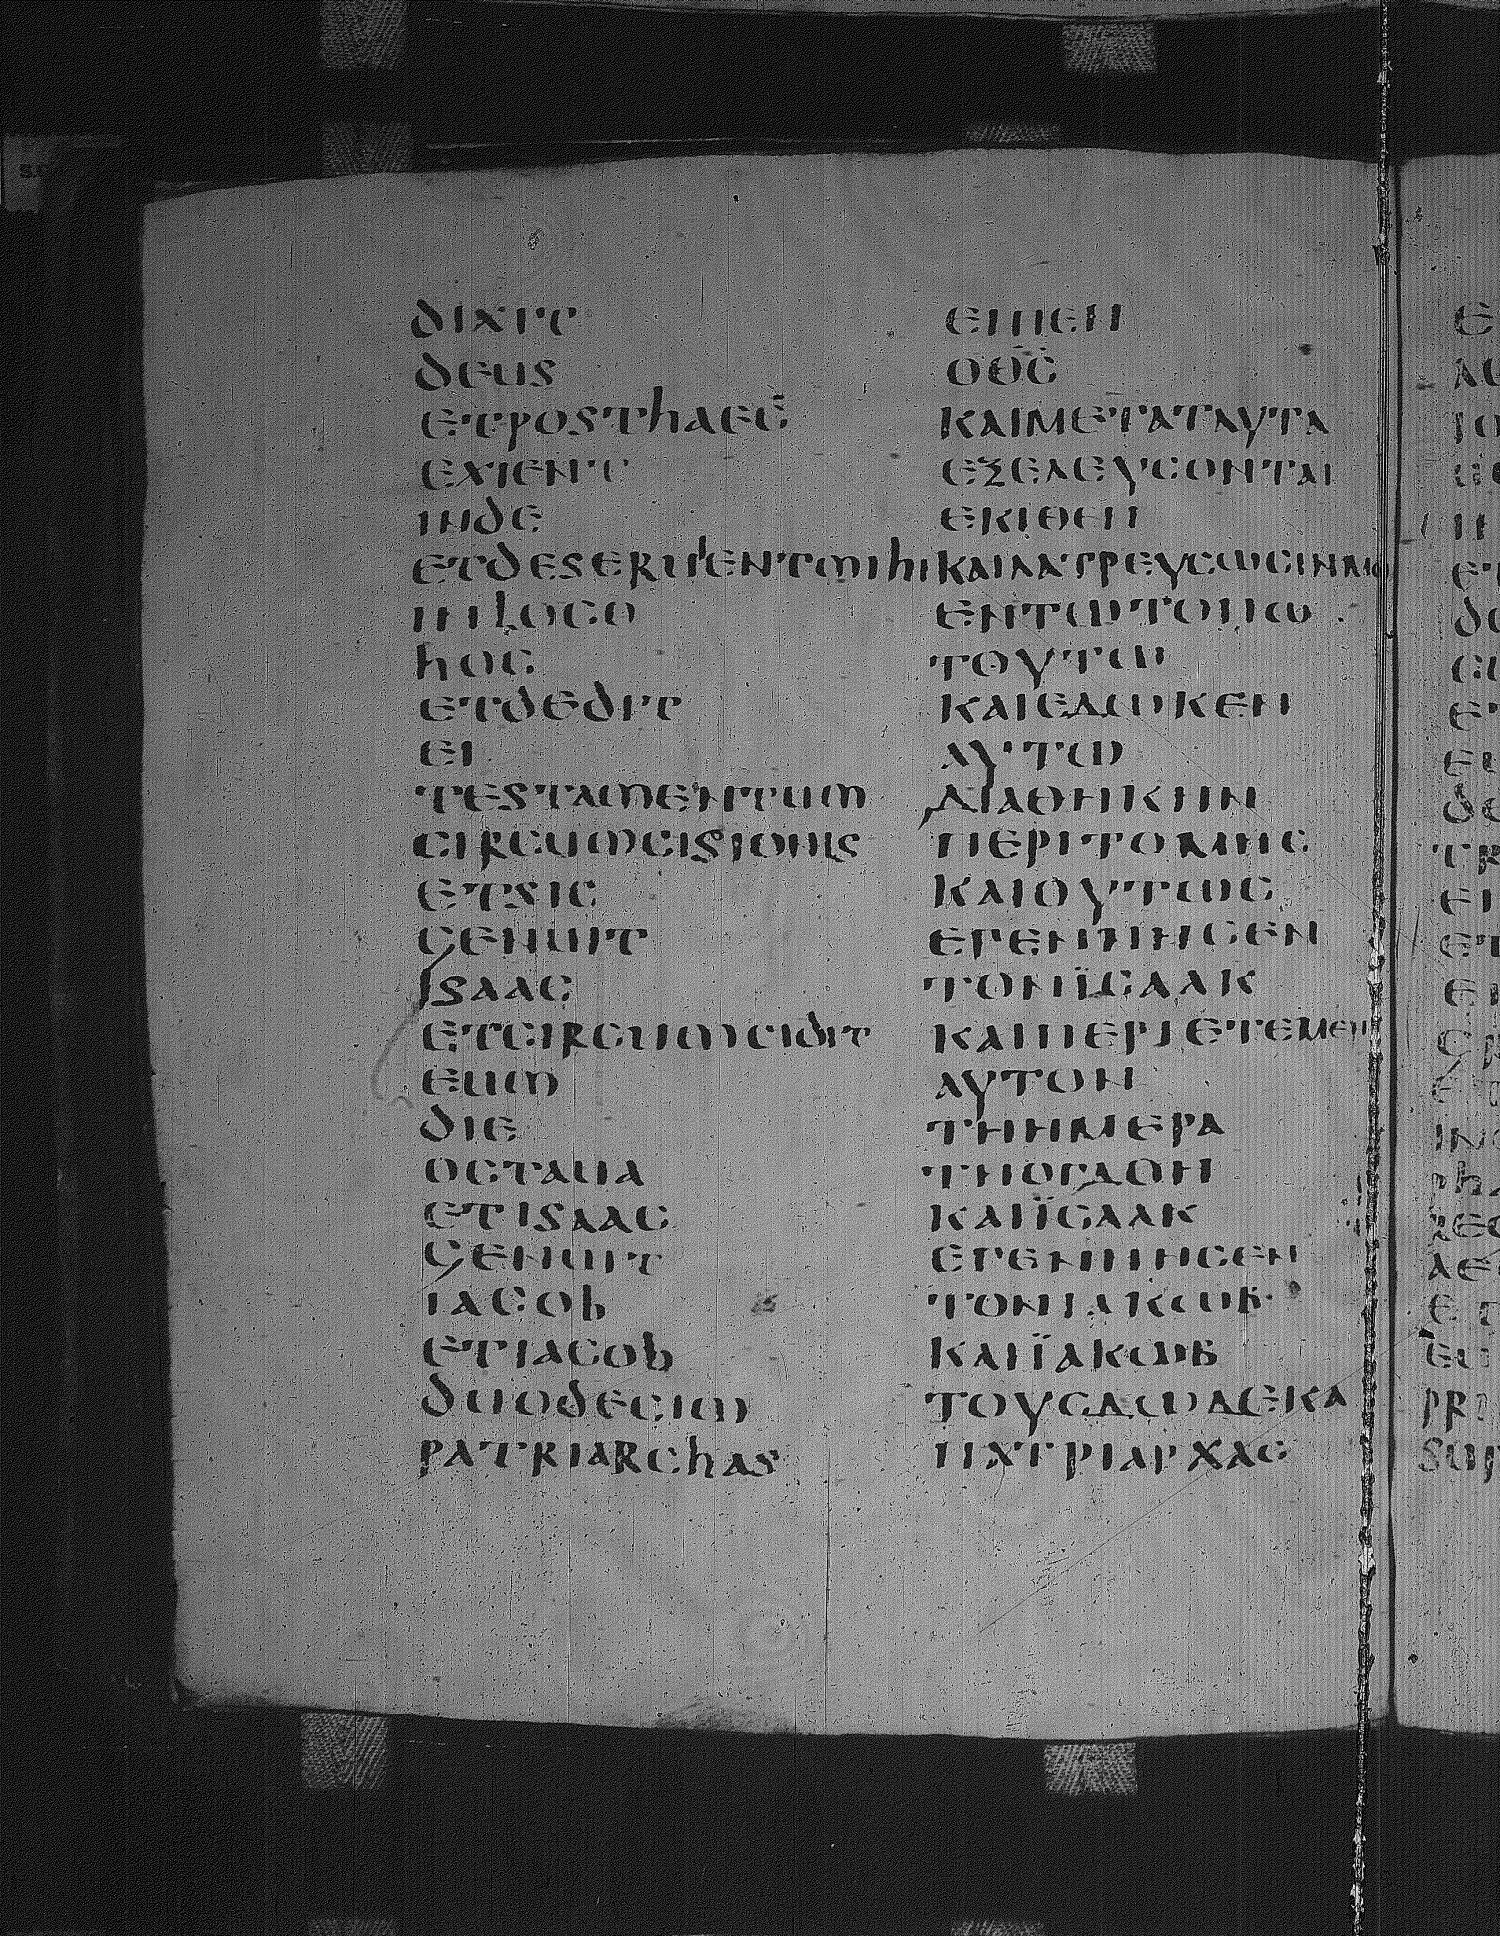 dixit ειπεν
deus ο θ̅ς̅
etposthaec καιμεταταυτα
exient εξελευσονται
inde εκιθεν
etdeseruientmihi καιλατρευσωσινμο
inloco εντωτοπω
hoc τουτω
etdedit καιεδωκεν
ei αυτω
testamentum διαθηκην
circumcisionis περιτομης
etsic καιουτως
genuit εγεννησεν
isaac τονϊσαακ
etcircumcidit καιπεριετεμεν
eum αυτον
die τηημερα
octaua τηογδοη
etisaac καιϊσαακ
genuit εγεννησεν
iacob τονιακωβ
etiacob καιϊακωβ
duodecim τουσδωδεκα
patriarchas πατριαρχας